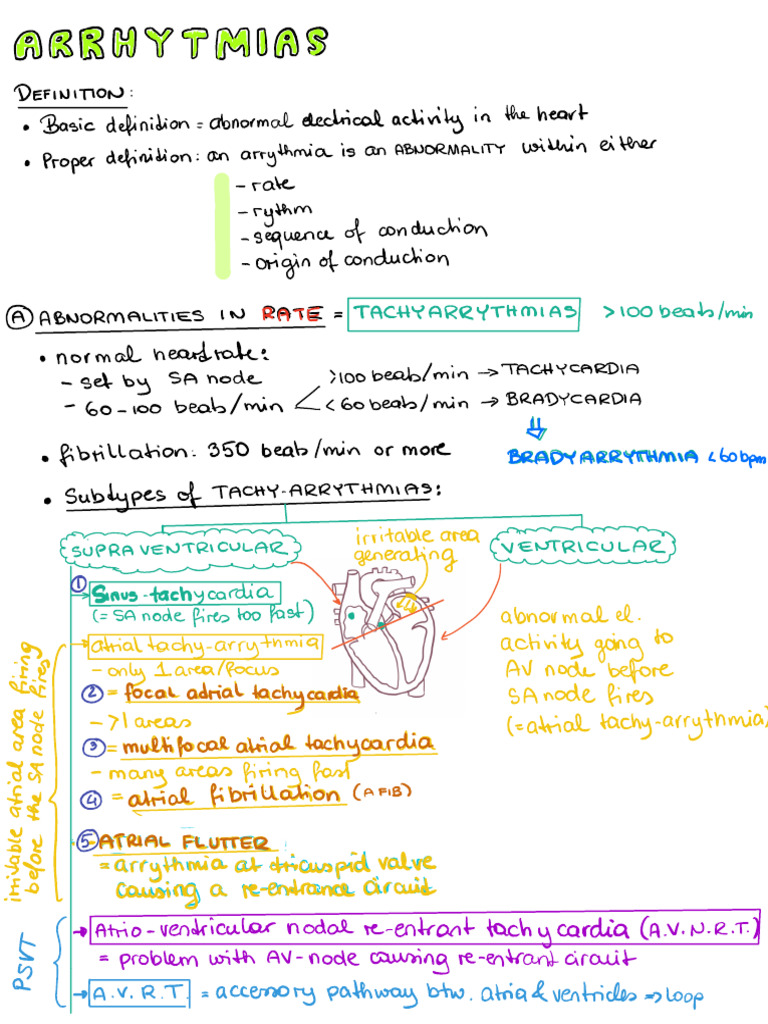 ARRHYTMIAS
DEFINITION:
• Basic definition = abnormal electrical activity in the heart
• Proper definition: an arrythmia is an ABNORMALITY within either
- rate
- rythm
- sequence of conduction
- origin of conduction
Ⓐ ABNORMALITIES IN RATE = TACHYARRYTHMIAS >100 beats/min
• normal heardrate:
- set by SA node
- 60-100 beats/min
>100 beats/min → TACHYCARDIA
<60 beats/min → BRADYCARDIA
⇓
BRADYARRYTHMIA <60bpm
• fibrillation: 350 beats/min or more
• Subtypes of TACHY-ARRYTHMIAS:
SUPRAVENTRICULAR
irritable area
generating
VENTRICULAR
① Sinus-tachycardia
(= SA node fires too fast)
→ atrial tachy-arrythmia
- only 1 area/focus
② = focal adrial tachycardia
- >1 areas
③ = multifocal atrial tachycardia
- many areas firing fast
④ = atrial fibrillation (AFIB)
⑤ ATRIAL FLUTTER
= arrythmia at tricuspid valve
causing a re-entrance circuit
abnormal el.
activity going to
AV node before
SA node fires
(= atrial tachy-arrythmia)
irritable atrial area firing
before the SA node fires
PSVT
→ Atrio-ventricular nodal re-entrant tachycardia (A.V.N.R.T.)
= problem with AV-node causing re-entrant circuit
→ A.V.R.T. = accessory pathway btw. atria & ventricles ⇒ loop